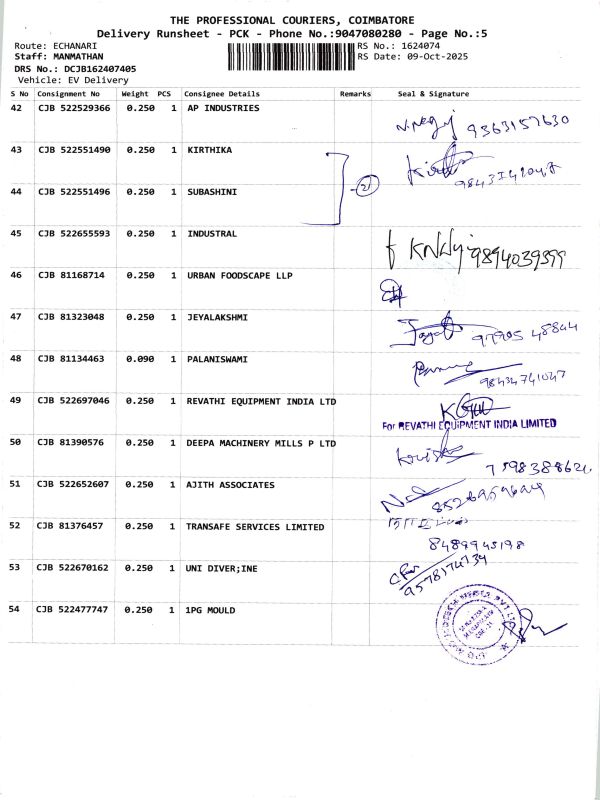 THE PROFESSIONAL COURIERS, COIMBATORE
Delivery Runsheet - PCK - Phone No.:9047080280 - Page No.:5
Route: ECHANARI
RS No.: 1624074
Staff: MANMATHAN
RS Date: 09-Oct-2025
DRS No.: DCJB162407405
Vehicle: EV Delivery
S No Consignment No Weight PCS Consignee Details Remarks Seal & Signature
42 CJB 522529366 0.250 1 AP INDUSTRIES
9363157630
43 CJB 522551490 0.250 1 KIRTHIKA
44 CJB 522551496 0.250 1 SUBASHINI
2
45 CJB 522655593 0.250 1 INDUSTRAL
9894039399
46 CJB 81168714 0.250 1 URBAN FOODSCAPE LLP
47 CJB 81323048 0.250 1 JEYALAKSHMI
97905 48844
48 CJB 81134463 0.090 1 PALANISWAMI
98434741047
49 CJB 522697046 0.250 1 REVATHI EQUIPMENT INDIA LTD
For REVATHI EQUIPMENT INDIA LIMITED
50 CJB 81390576 0.250 1 DEEPA MACHINERY MILLS P LTD
51 CJB 522652607 0.250 1 AJITH ASSOCIATES
52 CJB 81376457 0.250 1 TRANSAFE SERVICES LIMITED
8489943198
53 CJB 522670162 0.250 1 UNI DIVER;INE
9578174734
54 CJB 522477747 0.250 1 1PG MOULD